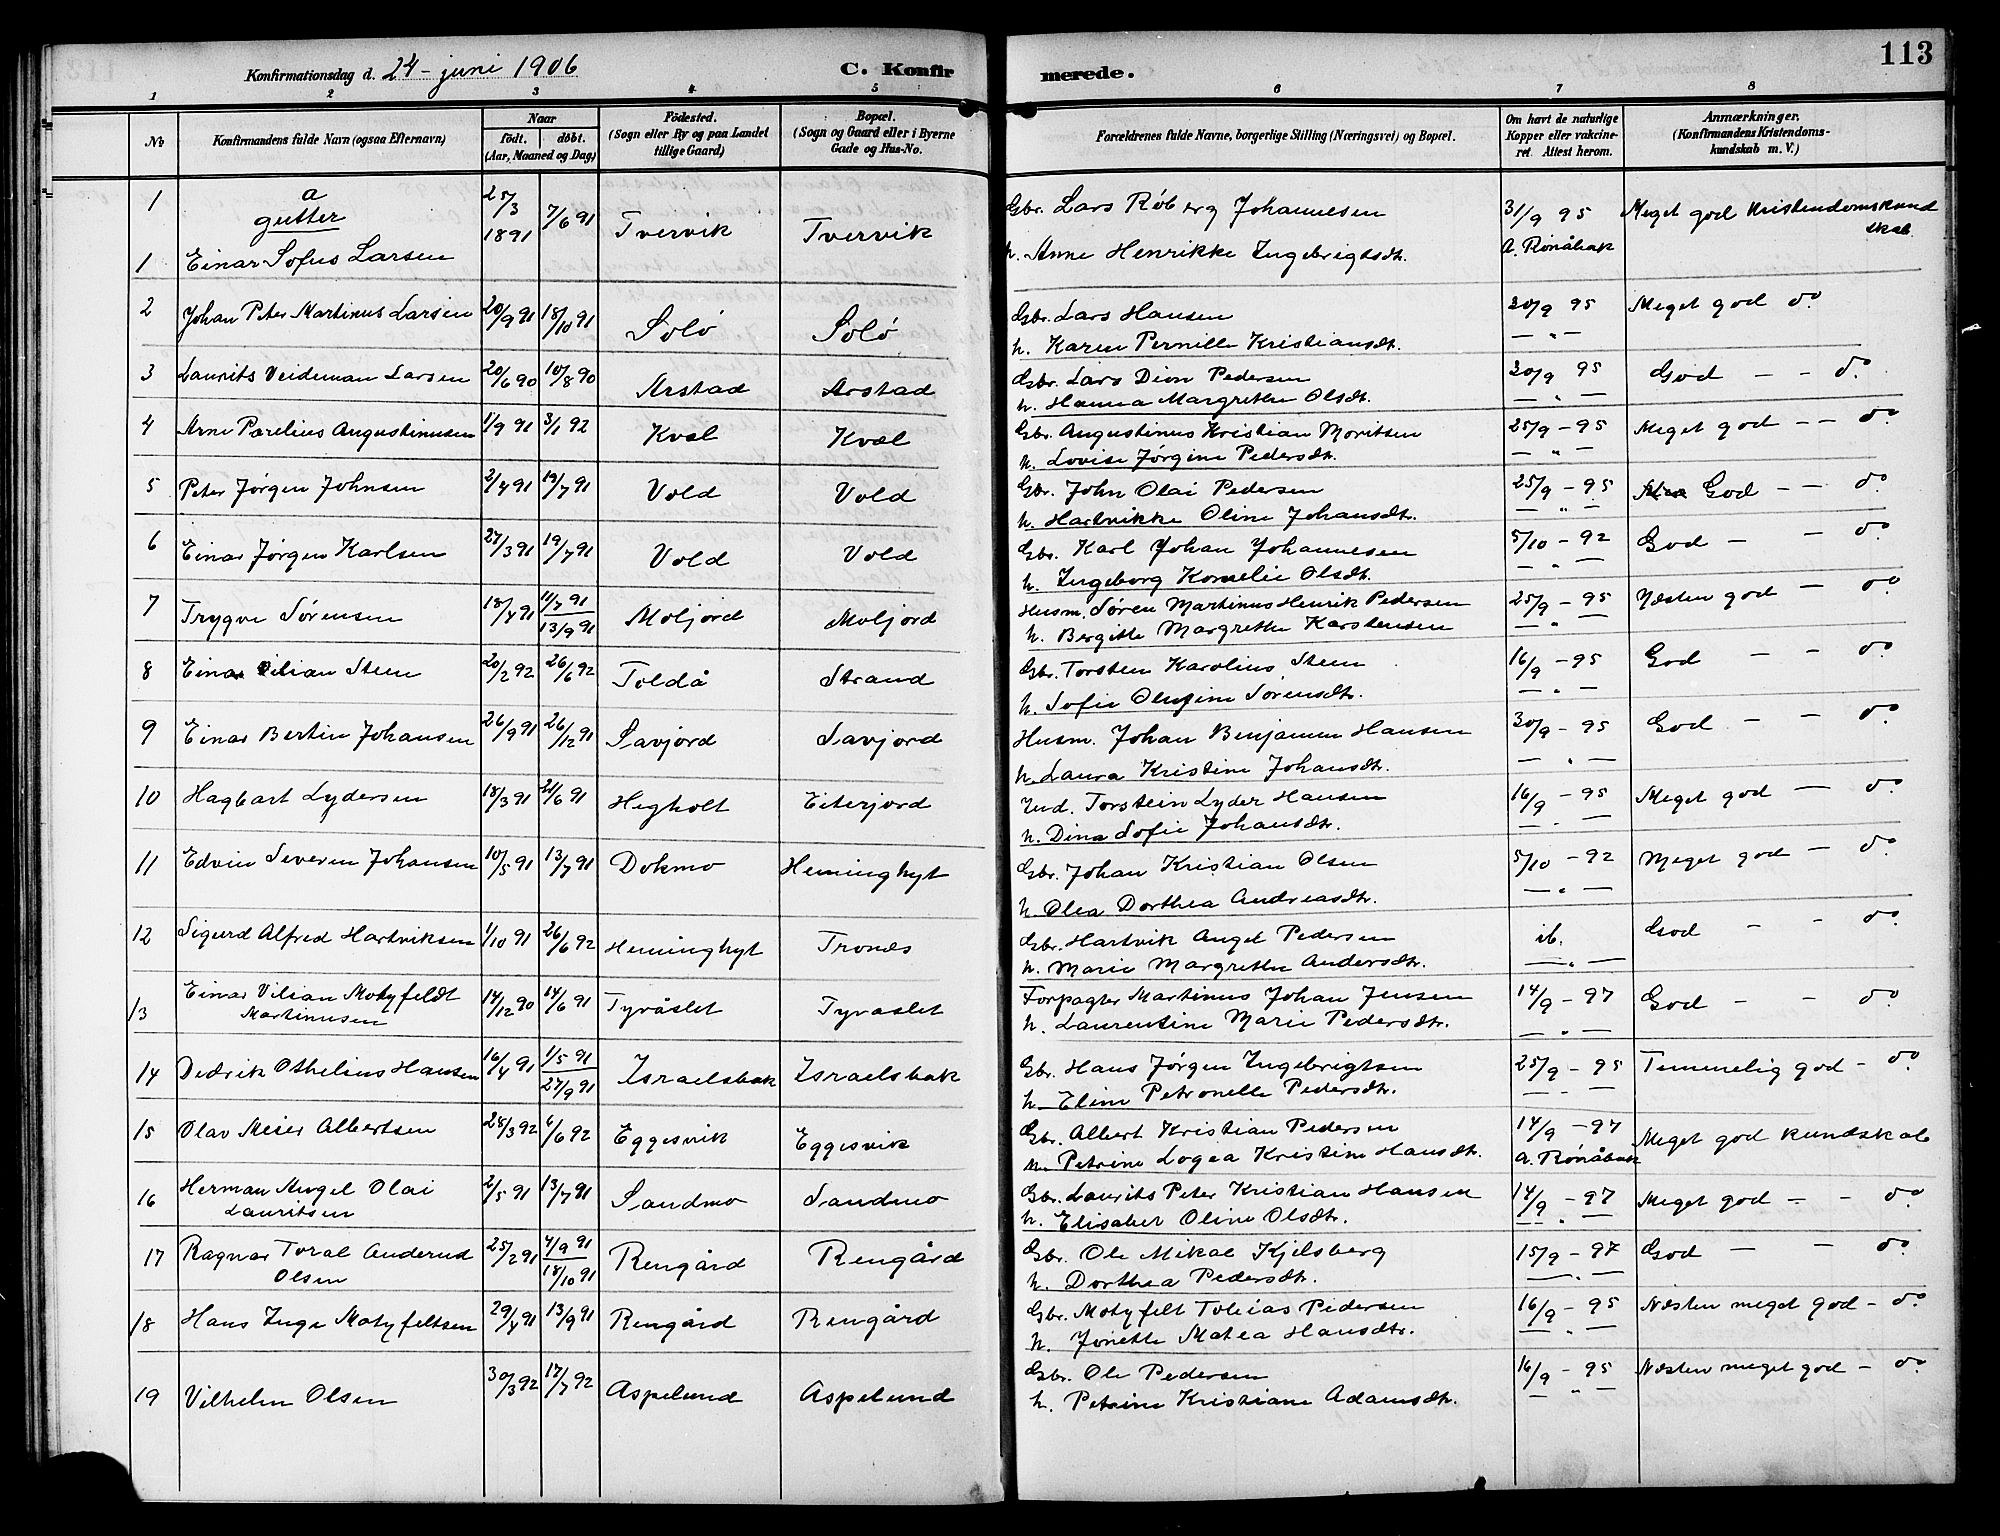 Konfirmationsdag d. 24 - juni 1906
C. Konfir
merede.
113
1 2 3 4 5 6 7 8
No
Konfirmandens fulde Navn (ogsaa Efternavn)
Naar
født. døbt.
(Aar, Maaned og Dag)
Födested.
(Sogn eller By og paa Landet
tillige Gaard)
Bopæl.
(Sogn og Gaard eller i Byerne
Gade og Hus-No.
Forældrenes fulde Navne, borgerlige Stilling (Næringsvei) og Bopæl.
Om havt de naturlige
Kopper eller vakcine-
ret. Attest herom.
Anmærkninger.
(Konfirmandens Kristendoms-
kundskab m. V.)
1 a
gutter
1 Einar Sofus Larsen 25/3 1891 7/6 91 Tvervik Tvervik Gbr. Lars Røberg Johannesen 31/9 95 Meget god Kristendomskund
skab
h. Anne Henrikke Ingebrigtsdtr. A. Rønåbak
2 Johan Peter Martinus Larsen 20/9 91 18/10 91 Solø Solø Gbr. Lars Hansen 20/9 95 Meget god do
h. Karen Pernille Kristiansdtr. — " —
3 Laurits Veideman Larsen 20/6 90 10/8 90 Arstad Arstad Gbr. Lars Dion Pedersen 20/9 95 God — — do
h. Hanna Margrethe Olsdtr. — " —
4 Arne Parelius Augustinusen 1/9 91 3/1 92 Kvæl Kvæl Gbr. Augustinus Kristian Moritsen 25/9 - 95 Meget god — — do
h. Lovise Jørgine Pedersdtr. — " —
5 Peter Jørgen Johnsen 2/4 91 19/7 91 Vold Vold Gbr. John Olai Pedersen 25/9 - 95 God — — do
h. Hartvikke Oline Johansdtr. — " —
6 Einar Jørgen Karlsen 27/3 91 19/7 91 Vold Vold Gbr. Karl Johan Johannesen 5/10 - 92 God — — do
h. Ingeborg Kornelie Olsdtr. — " —
7 Trygve Sørensen 18/4 91 11/7 91 13/9 91 Moljord Moljord Husm. Søren Martinus Henrik Pedersen 25/9 - 95 Næsten god — do
h. Bergitte Margrethe Karstensen — " —
8 Einar Vilian Steen 20/2 92 26/6 92 Toldå Strand Gbr. Torsten Karolius Steen 16/9 - 95 God — — do
h. Sofie Olufine Sørensdtr. — " —
9 Einar Bertin Johansen 26/9 91 26/12 91 Savjord Savjord Husm. Johan Benjamin Hansen 30/9 - 95 God — — do
h. Laura Kristine Johansdtr. — " —
10 Hagbart Lydersen 18/3 91 21/6 91 Hegholt Eiterjord Ind. Torstein Lyder Hansen 16/9 - 95 Meget god — do
h. Dina Sofie Johansdtr. — " —
11 Edvin Severin Johansen 10/5 91 13/7 91 Dokmo Heminghyt Gbr. Johan Kristian Olsen 5/10 - 92 Meget god — do
h. Olea Dorthea Andreasdtr. — " —
12 Sigurd Alfred Hartviksen 1/10 91 26/6 92 Heminghyt Tronæs Gbr. Hartvik Angel Pedersen ib. God — do
h. Marie Margrethe Andersdtr. — " —
13 Einar Vilian Motyfeldt
Martinusen 14/12 90 14/6 91 Tyvåslet Tyvaslet Forpagter Martinus Johan Jensen 14/9 - 97 God — — do
h. Laurentine Marie Pedersdtr. — " —
14 Dedrik Othelius Hansen 16/4 91 1/5 91 27/9 91 Israelsbak Israelsbak Gbr. Hans Jørgen Ingebrigtsen 25/9 - 95 Temmelig god - do
h. Eline Petronelle Pedersdtr. — " —
15 Olav Meier Albertsen 28/3 92 6/6 92 Eggesvik Eggesvik Gbr. Albert Kristian Pedersen 14/9 - 97 Meget god kundskab
h. Petrine Logea Kristine Hansdtr. A. Rønåbak
16 Herman Angel Olai
Lauritsen 2/5 91 13/7 91 Sandmo Sandmo Gbr. Laurits Peter Kristian Hansen 14/9 - 97 Meget god — - do
h. Elisabet Oline Olsdtr. — " —
17 Ragnar Toral Anderud
Olsen 25/2 91 4/9 91 18/10 91 Rengård Rengård Gbr. Ole Mikal Kjelsberg 15/9 - 97 God — — do
h. Dorthea Pedersdtr. — " —
18 Hans Inge Motyfeltsen 29/4 91 13/9 91 Rengård Rengård Gbr. Motyfelt Tobias Pedersen 16/9 - 95 Næsten meget god - do
h. Jonette Matea Hansdtr. — " —
19 Vilhelm Olsen 30/3 92 17/7 92 Aspelund Aspelund Gbr. Ole Pedersen 16/9 - 95 Næsten meget god - do
h. Petrine Kristiane Adamsdtr. — " —